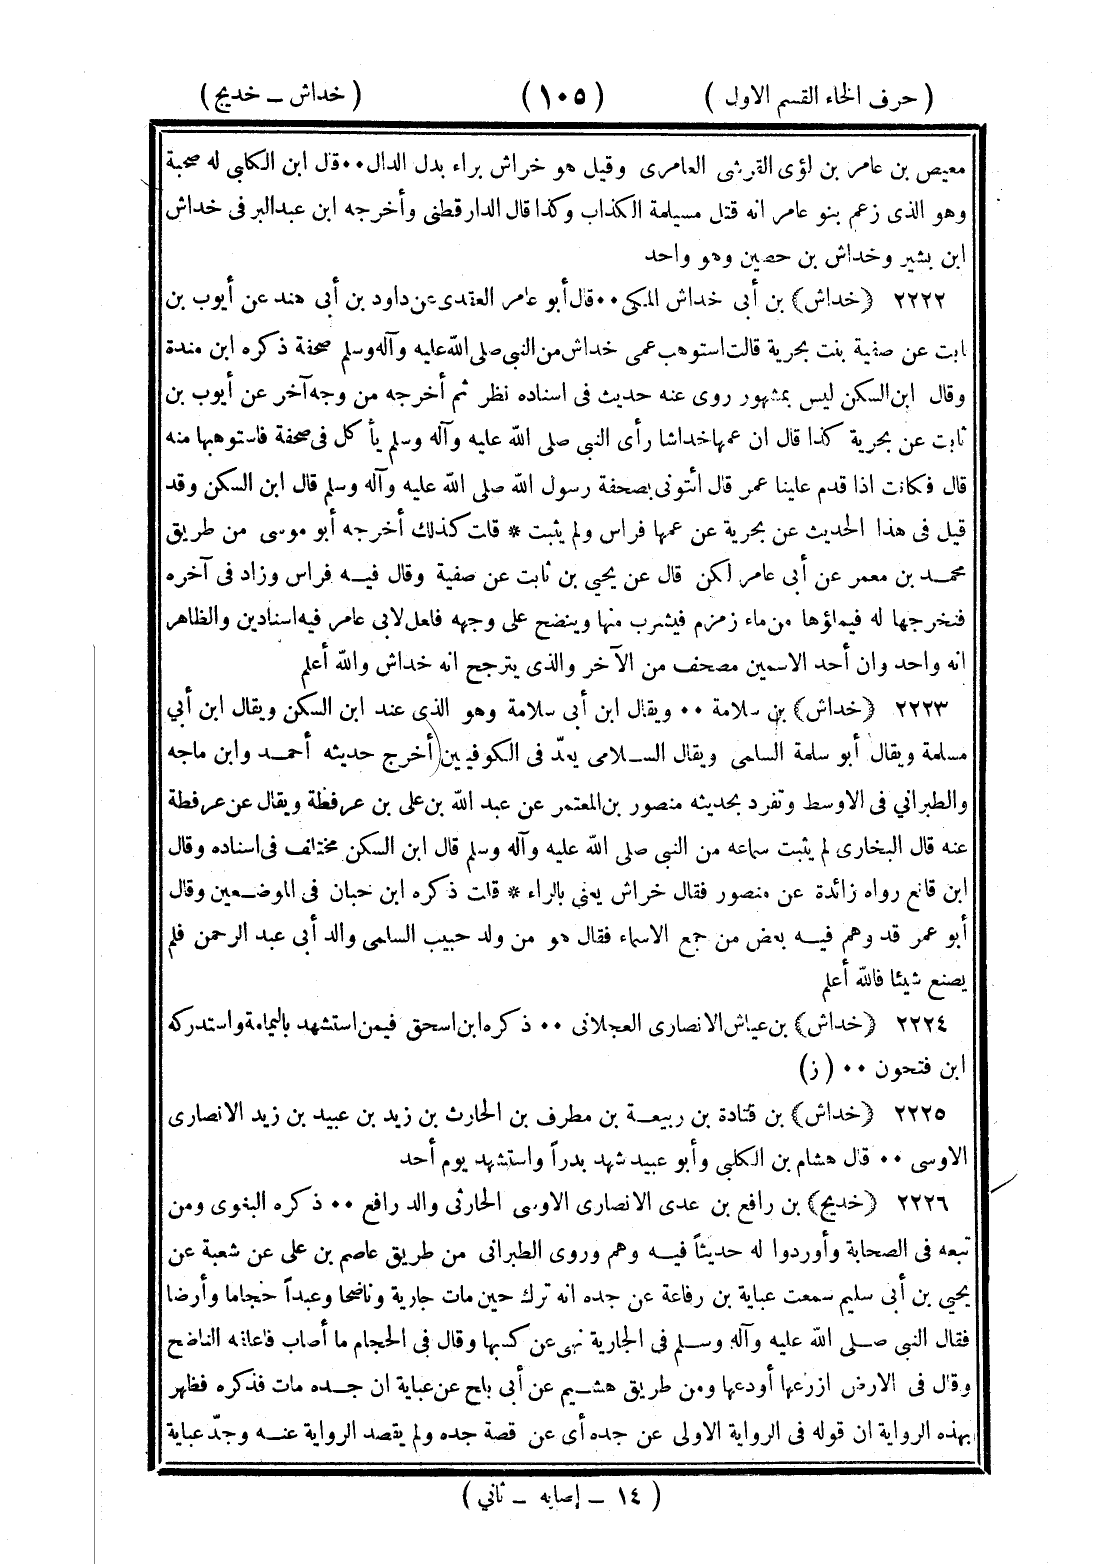 ( حرف الخاء القسم الاول ) ( ١٠٥ ) ( خداش ـ خديج )
معيص بن عامر بن لؤى القرشى العامرى وقيل هو خراش براء بدل الدال ٠٠ قال ابن الكلبى له صحبة
وهو الذى زعم بنو عامر انه قتل مسيلمة الكذاب وكذا قال الدارقطنى وأخرجه ابن عبدالبر فى خداش
ابن بشير وخداش بن حصين وهو واحد
٢٢٢٢ (خداش) بن أبى خداش المكى ٠٠ قال أبو عامر العقدى عن داود بن أبى هند عن أيوب بن
ثابت عن صفية بنت بحرية قالت استوهب عمى خداش من النبى صلى الله عليه وآله وسلم صحفة ذكره ابن مندة
وقال ابن السكن ليس بمشهور روى عنه حديث فى اسناده نظر ثم أخرجه من وجه آخر عن أيوب بن
ثابت عن بحرية كذا قال ان عمها خداشا رأى النبى صلى الله عليه وآله وسلم يأكل فى صحفة فاستوهبها منه
قال فكانت اذا قدم علينا عمر قال ائتونى بصحفة رسول الله صلى الله عليه وآله وسلم قال ابن السكن وقد
قيل فى هذا الحديث عن بحرية عن عمها فراس ولم يثبت * قلت كذلك أخرجه أبو موسى من طريق
محمد بن معمر عن أبى عامر لكن قال عن يحيى بن ثابت عن صفية وقال فيه فراس وزاد فى آخره
فنخرجها له فيملؤها من ماء زمزم فيشرب منها وينضح على وجهه فلعل لابى عامر فيه اسنادين والظاهر
انه واحد وان أحد الاسمين مصحف من الآخر والذى يترجح انه خداش والله أعلم
٢٢٢٣ (خداش) بن سلامة ٠٠ ويقال ابن أبى سلامة وهو الذى عند ابن السكن ويقال ابن أبي
مسلمة ويقال أبو سلمة السلمى ويقال السلامى يعدّ فى الكوفيين أخرج حديثه أحمد وابن ماجه
والطبراني فى الاوسط وتفرد بحديثه منصور بن المعتمر عن عبد الله بن على بن عرفطة ويقال عن عرفطة
عنه قال البخارى لم يثبت سماعه من النبي صلى الله عليه وآله وسلم قال ابن السكن مختلف فى اسناده وقال
ابن قانع رواه زائدة عن منصور فقال خراش يعني بالراء * قلت ذكره ابن حبان فى الموضعين وقال
أبو عمر قد وهم فيه بعض من جمع الاسماء فقال هو من ولد حبيب السلمى والد أبى عبد الرحمن فلم
يصنع شيئا فالله أعلم
٢٢٢٤ (خداش) بن عياش الانصارى العجلانى ٠٠ ذكره ابن اسحق فيمن استشهد باليمامة واستدركه
ابن فتحون ٠٠ (ز)
٢٢٢٥ (خداش) بن قتادة بن ربيعة بن مطرف بن الحارث بن زيد بن عبيد بن زيد الانصارى
الاوسى ٠٠ قال هشام بن الكلبي وأبو عبيد شهد بدراً واستشهد يوم أحد
٢٢٢٦ (خديج) بن رافع بن عدى الانصارى الاوسى الحارثى والد رافع ٠٠ ذكره البغوى ومن
تبعه فى الصحابة وأوردوا له حديثاً فيه وهم وروى الطبرانى من طريق عاصم بن على عن شعبة عن
يحيى بن أبى سليم سمعت عباية بن رفاعة عن جده انه ترك حين مات جارية وناضحا وعبداً حجاما وأرضا
فقال النبى صلى الله عليه وآله وسلم فى الجارية نهى عن كسبها وقال فى الحجام ما أصاب فاعلفه الناضح
وقال فى الارض ازرعها أودعها ومن طريق هشيم عن أبى بلج عن عباية ان جده مات فذكره فظهر
بهذه الرواية ان قوله فى الرواية الاولى عن جده أى عن قصة جده ولم يقصد الرواية عنه وجدّ عباية
( ١٤ ـ إصابه ـ ثاني )